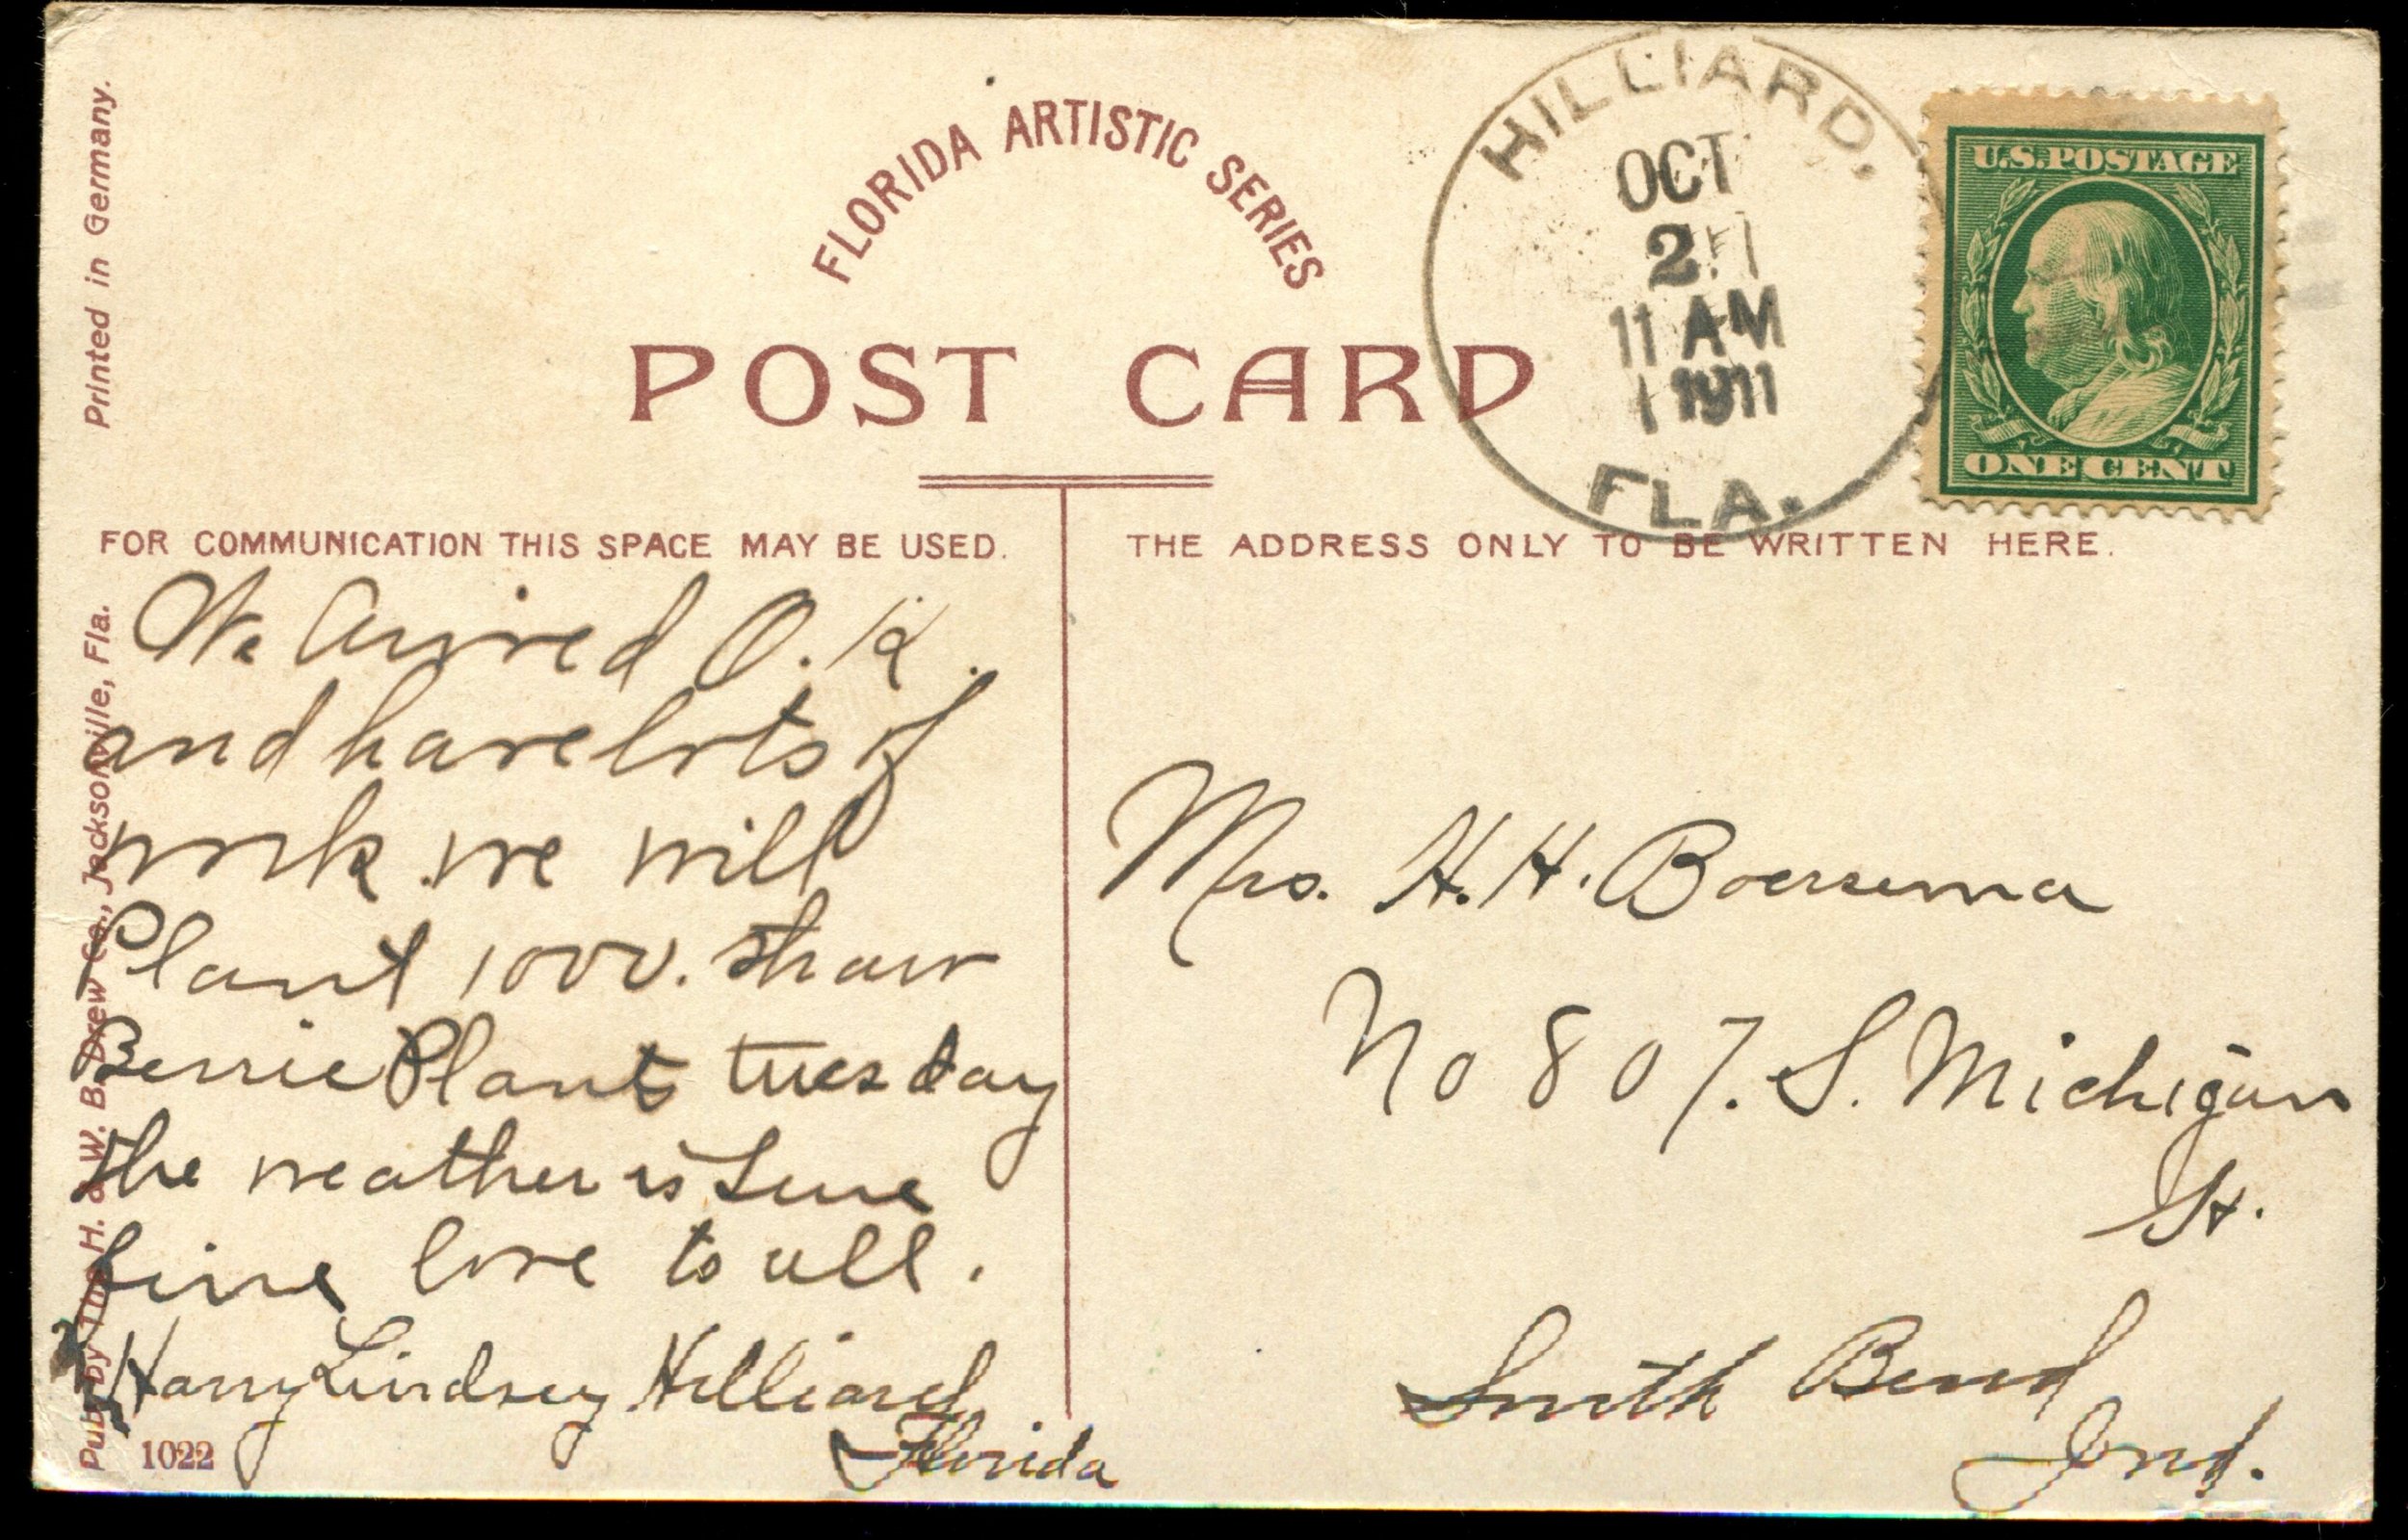 Printed in Germany.
FLORIDA ARTISTIC SERIES
POST CARD
HILLIARD,
OCT
2
11 AM
1911
FLA.
U.S. POSTAGE
ONE CENT
FOR COMMUNICATION THIS SPACE MAY BE USED.
THE ADDRESS ONLY TO BE WRITTEN HERE.
We Arrived O.K.
and have lots of
work. we will
Plant 1000. Straw
Berrie Plants tuesday
the weather is
fine love to all.
Harry Lindsey Hilliard
Florida
Mrs. H. H. Boersema
No 807. S. Michigan
St.
South Bend
Ind.
Pub. by The H. & W. B. Drew Co., Jacksonville, Fla.
1022